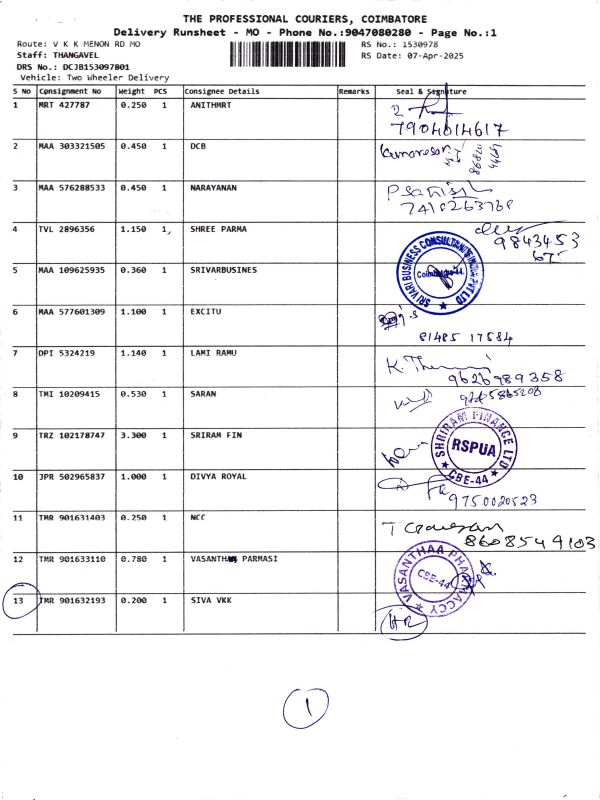 THE PROFESSIONAL COURIERS, COIMBATORE
Delivery Runsheet - MO - Phone No.:9047080280 - Page No.:1
Route: V K K MENON RD MO RS No.: 1530978
Staff: THANGAVEL RS Date: 07-Apr-2025
DRS No.: DCJB153097801
Vehicle: Two Wheeler Delivery
S No Consignment No Weight PCS Consignee Details Remarks Seal & Signature
1 MRT 427787 0.250 1 ANITHMRT
7904614617
2 MAA 303321505 0.450 1 DCB Kumaresan
3 MAA 576288533 0.450 1 NARAYANAN
7418263768
4 TVL 2896356 1.150 1 SHREE PARMA
9843453
67
5 MAA 109625935 0.360 1 SRIVARBUSINES SRI VARI BUSINESS CONSULTANTS INDIA PVT LTD Coimbatore-44
6 MAA 577601309 1.100 1 EXCITU
81485 17584
7 DPI 5324219 1.140 1 LAMI RAMU
9626989358
8 TMI 10209415 0.530 1 SARAN
9 TRZ 102178747 3.300 1 SRIRAM FIN SHRIRAM FINANCE LTD RSPUA CBE-44
10 JPR 502965837 1.000 1 DIVYA ROYAL
9750020523
11 TMR 901631403 0.250 1 NCC
8608549103
12 TMR 901633110 0.780 1 VASANTHA PARMASI VASANTHAA PHARMACCY CBE-44
13 TMR 901632193 0.200 1 SIVA VKK HR
1